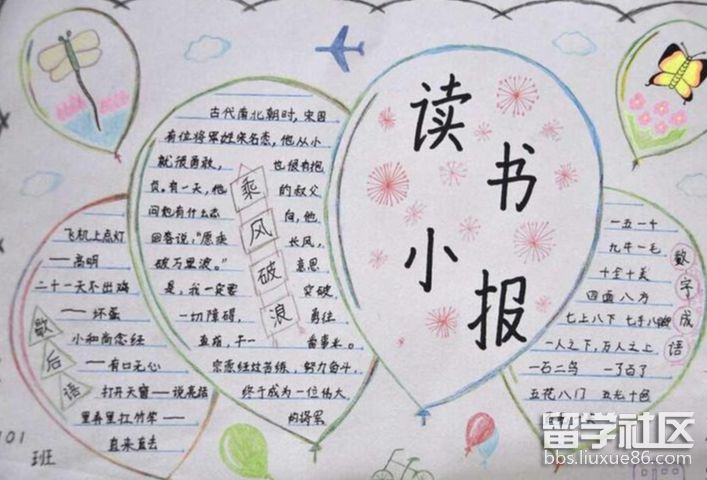 读书
小报
古代南北朝时,宋国
有位将军姓宋名悫,他从小
就很勇敢, 也很有抱
负。有一天,他 的叔父
问他有什么志 向,他
回答说,"愿乘 长风,
破万里浪。" 意思
是,我一定要 突破
一切障碍, 勇往
直前,干一 番事业。
宗悫经过苦练,努力奋斗,
终于成为一位伟大
的将军
乘风破浪
飞机上点灯
——高明
二十一天不出鸡
——坏蛋
小和尚念经
——有口无心
打开天窗——说亮话
里弄里扛竹竿——
直来直去
歇后语
一五一十
九牛一毛
十全十美
四面八方
七上八下 七手八脚
一人之下,万人之上
一石二鸟 一了百了
五花八门 五光十色
数字成语
101
班
留学社区
bbs.liuxue86.com